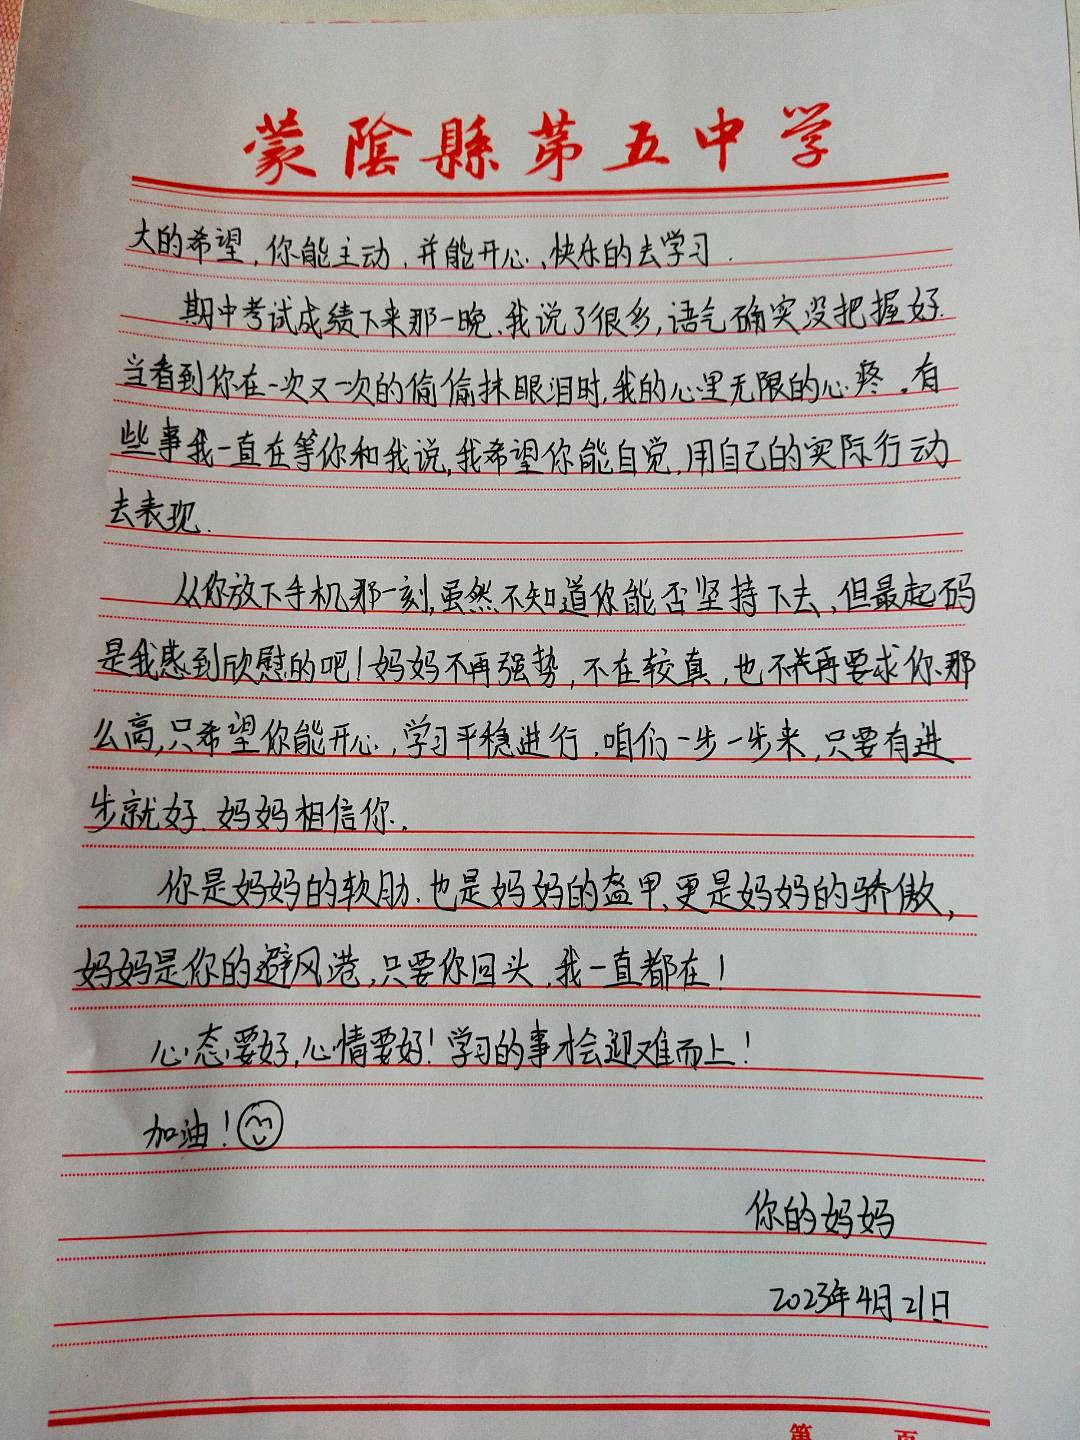 蒙陰縣第五中学
大的希望,你能主动,并能开心、快乐的去学习.
期中考试成绩下来那一晚、我说了很多,语气确实没把握好.
当看到你在一次又一次的偷偷抹眼泪时,我的心里无限的心疼。有
些事我一直在等你和我说,我希望你能自觉.用自己的实际行动
去表现.
从你放下手机那一刻,虽然不知道你能否坚持下去,但最起码
是我感到欣慰的吧!妈妈不再强势,不在较真,也不再要求你那
么高,只希望你能开心,学习平稳进行.咱们一步一步来,只要有进
步就好.妈妈相信你.
你是妈妈的软肋.也是妈妈的盔甲,更是妈妈的骄傲,
妈妈是你的避风港,只要你回头,我一直都在!
心态要好,心情要好!学习的事才会迎难而上!
加油!
你的妈妈
2023年4月21日
第 页